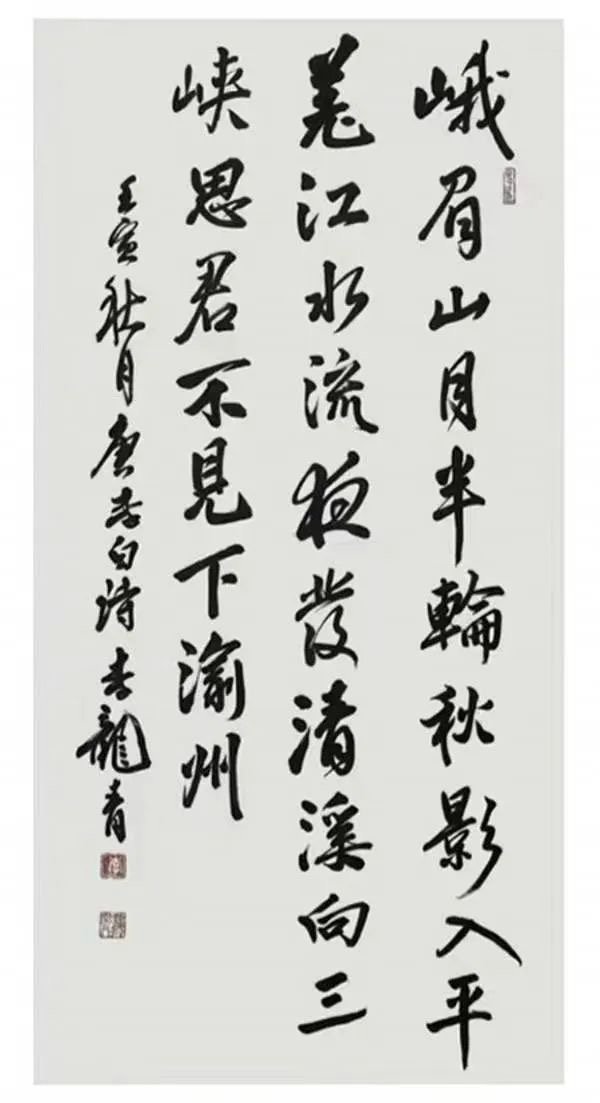 峨眉山月半輪秋影入平
羌江水流夜發清溪向三
峡思君不見下渝州
壬寅秋月唐李白诗李龍青